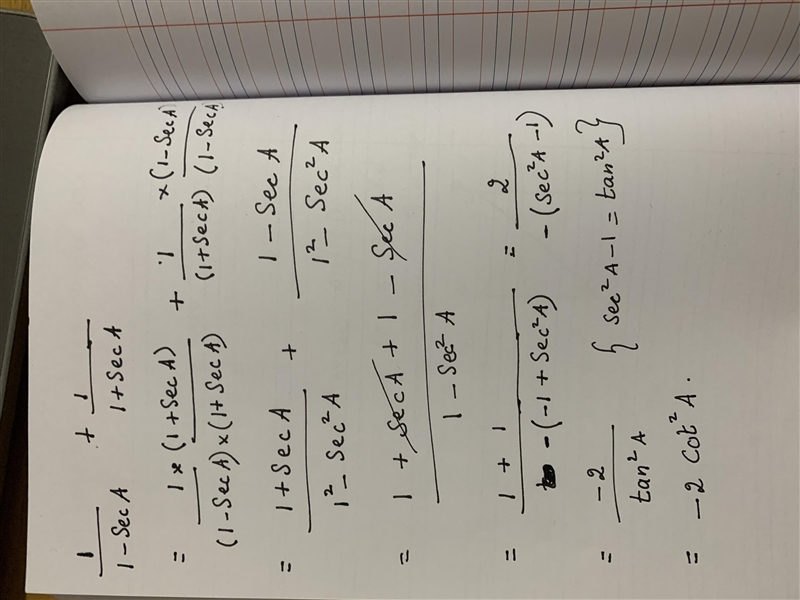 1/(1 - Sec A) + 1/(1 + Sec A)
= 1 × (1 + Sec A)/((1 - Sec A) × (1 + Sec A)) + 1/(1 + Sec A) × (1 - Sec A)/(1 - Sec A)
= (1 + Sec A)/(1² - Sec² A) + (1 - Sec A)/(1² - Sec² A)
= (1 + Sec A + 1 - Sec A)/(1 - Sec² A)
= (1 + 1)/(-(-1 + Sec² A)) = 2/(-(Sec² A - 1))
= -2/tan² A { Sec² A - 1 = tan² A }
= -2 Cot² A.